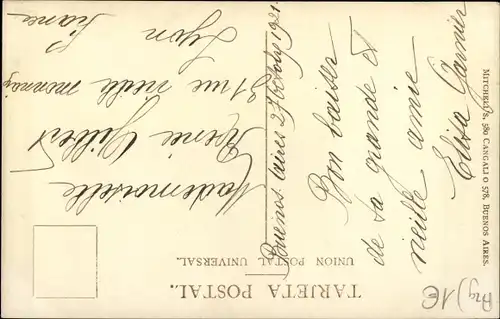 TARJETA POSTAL.
UNION POSTAL UNIVERSAL.
Buenos Aires 27 Octobre 1921
Bon baiser
de ta grande et
vieille amie
Elisa Garnier
Mademoiselle
Renée Gilbert
31 rue vieille monnaie
Lyon
France
MITCHELL'S, 580 CANGALLO 578, BUENOS AIRES.
Arg) 1€